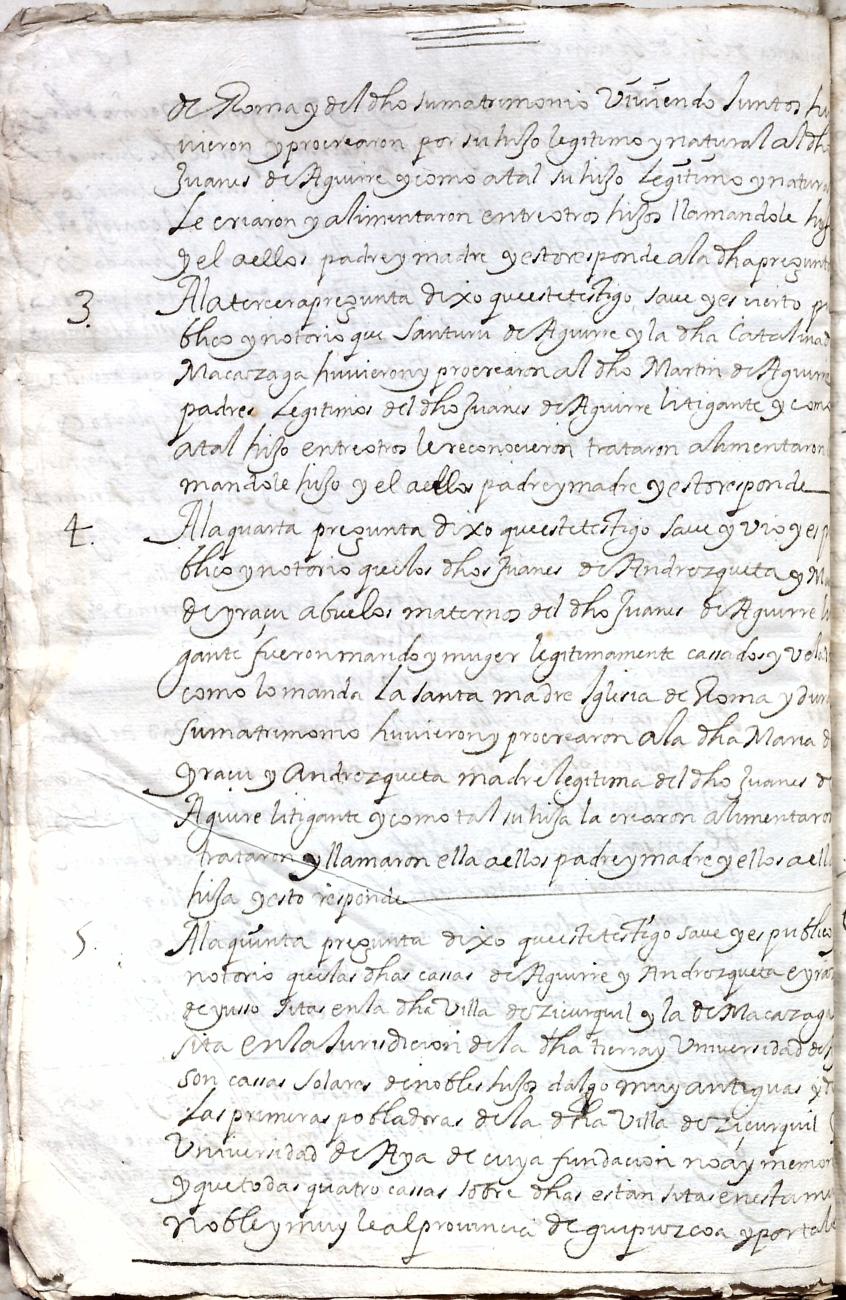 de Roma y del dho su matrimonio Viviendo Juntos hu
vieron y procrearon por su hijo legitimo y natural al dho
Juanes de Aguirre y como a tal su hijo Legitimo y natura
Le criaron y alimentaron entre otros hijos llamandole hijo
y el a ellos padre y madre y esto responde a la dha pregunta
3. A la tercera pregunta dixo que este testigo save y es cierto pu
blico y notorio que Santuru de Aguirre y la dha Catalina d
Macazaga huvieron y procrearon al dho Martin de Aguirre
padres Legitimos del dho Juanes de Aguirre litigante y como
a tal hijo entre otros le reconocieron trataron alimentaron
mandole hijo y el a ellos padre y madre y esto responde
4. A la quarta pregunta dixo que este testigo save y vio y es p
blico y notorio que los dhos Juanes de Androzqueta y Ma
de yraçu abuelos maternos del dho Juanes de Aguirre li
gante fueron marido y muger legitimamente cassados y vela
como lo manda La santa madre Iglesia de Roma y dura
su matrimonio huvieron y procrearon a la dha Maria d
yraçu y Androzqueta madre legitima del dho Juanes de
Aguirre litigante y como tal su hija la criaron alimentaron
trataron y llamaron ella a ellos padre y madre y ellos a ella
hija y esto responde
5. A la quinta pregunta dixo que este testigo save y es publico
notorio que las dhas cassas de Aguirre y Androzqueta e yra
de yusso sitas en la dha Villa de Zicurquil y la de Macazaga
sita en la Jurisdicion de la dha tierra y Universidad de
son cassas solares de nobles hijos dalgo muy antiguas y d
Las primeras pobladoras de la dha Villa de Ziçurquil
Universidad de Aya de cuya fundacion no ay memor
y que todas quatro cassas sobre dhas estan sitas en esta mu
Noble y muy leal provincia de guipuzcoa y por tale